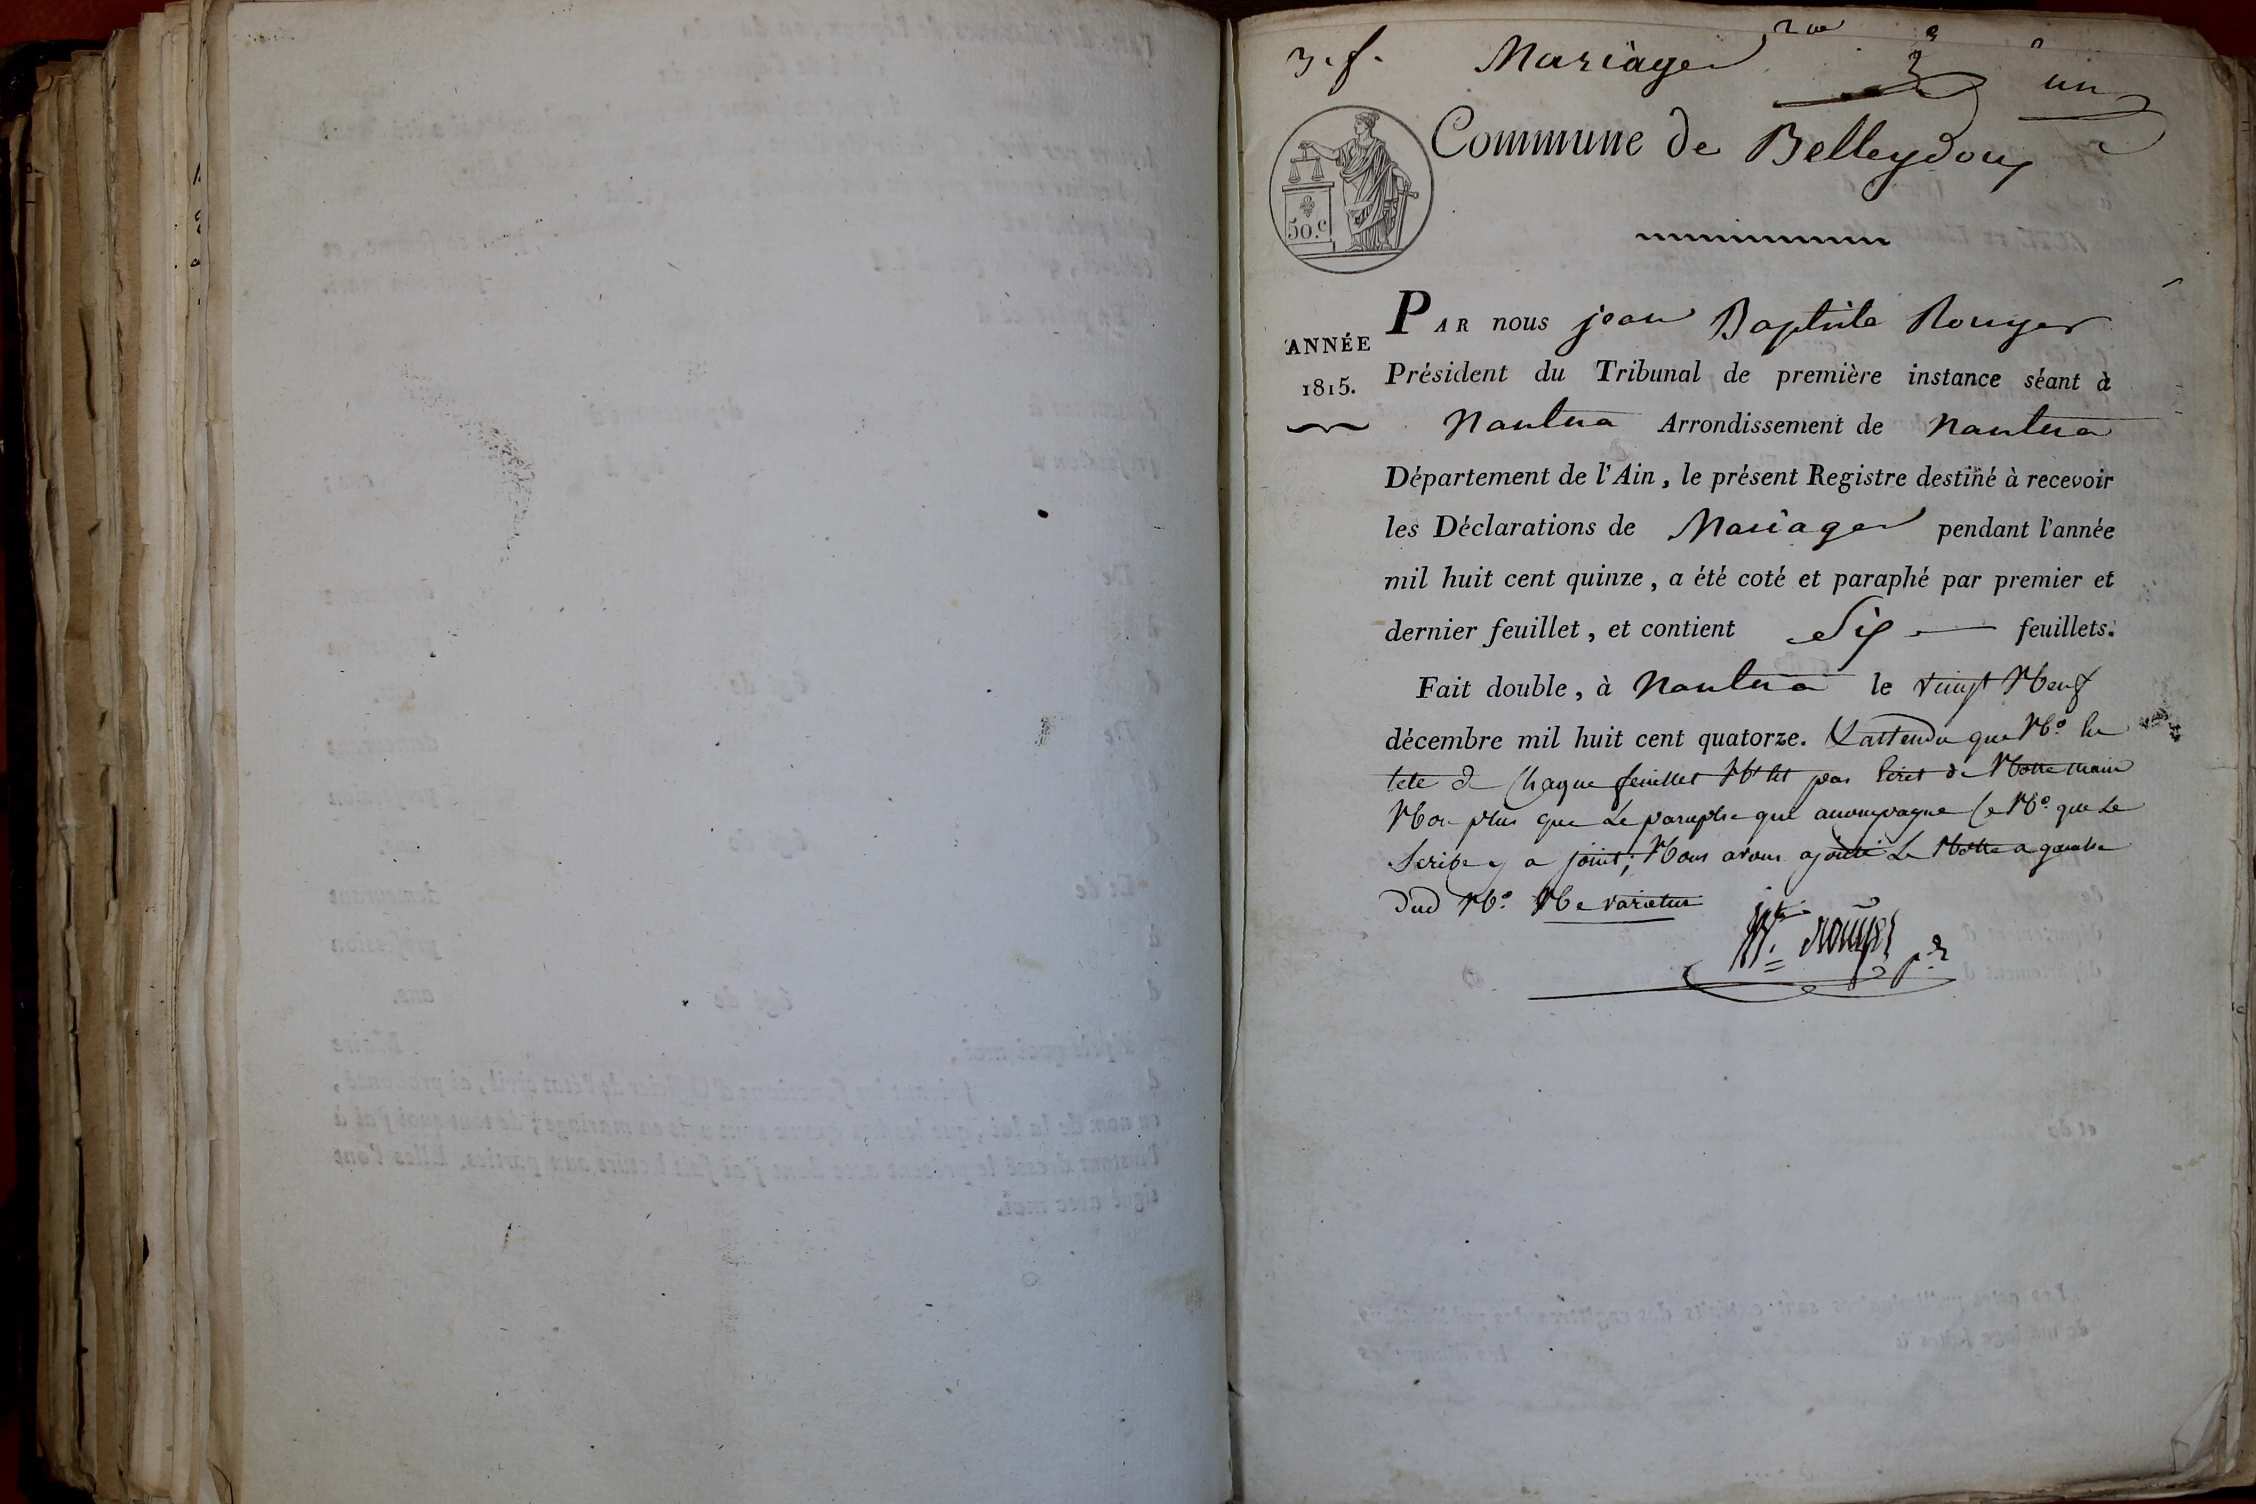 3. f. Mariages un
Commune de Belleydoux
50.c
ANNÉE
1815.
PAR nous jean Baptiste Rouyer
Président du Tribunal de première instance séant à
Nantua Arrondissement de Nantua
Département de l'Ain, le présent Registre destiné à recevoir
les Déclarations de Mariages pendant l'année
mil huit cent quinze, a été coté et paraphé par premier et
dernier feuillet, et contient Six feuillets.
Fait double, à Nantua le vingt Neuf
décembre mil huit cent quatorze. & attendu que N.o En
tete de Chaque feuillet N'est pas Ecrit de Notre main
Non plus que Le paraphe qui accompagne Ce N.o que Le
Scribe y a joint; Nous avons ajouté Le Notre a gauche
dud N.o Ne varietur
rouyer